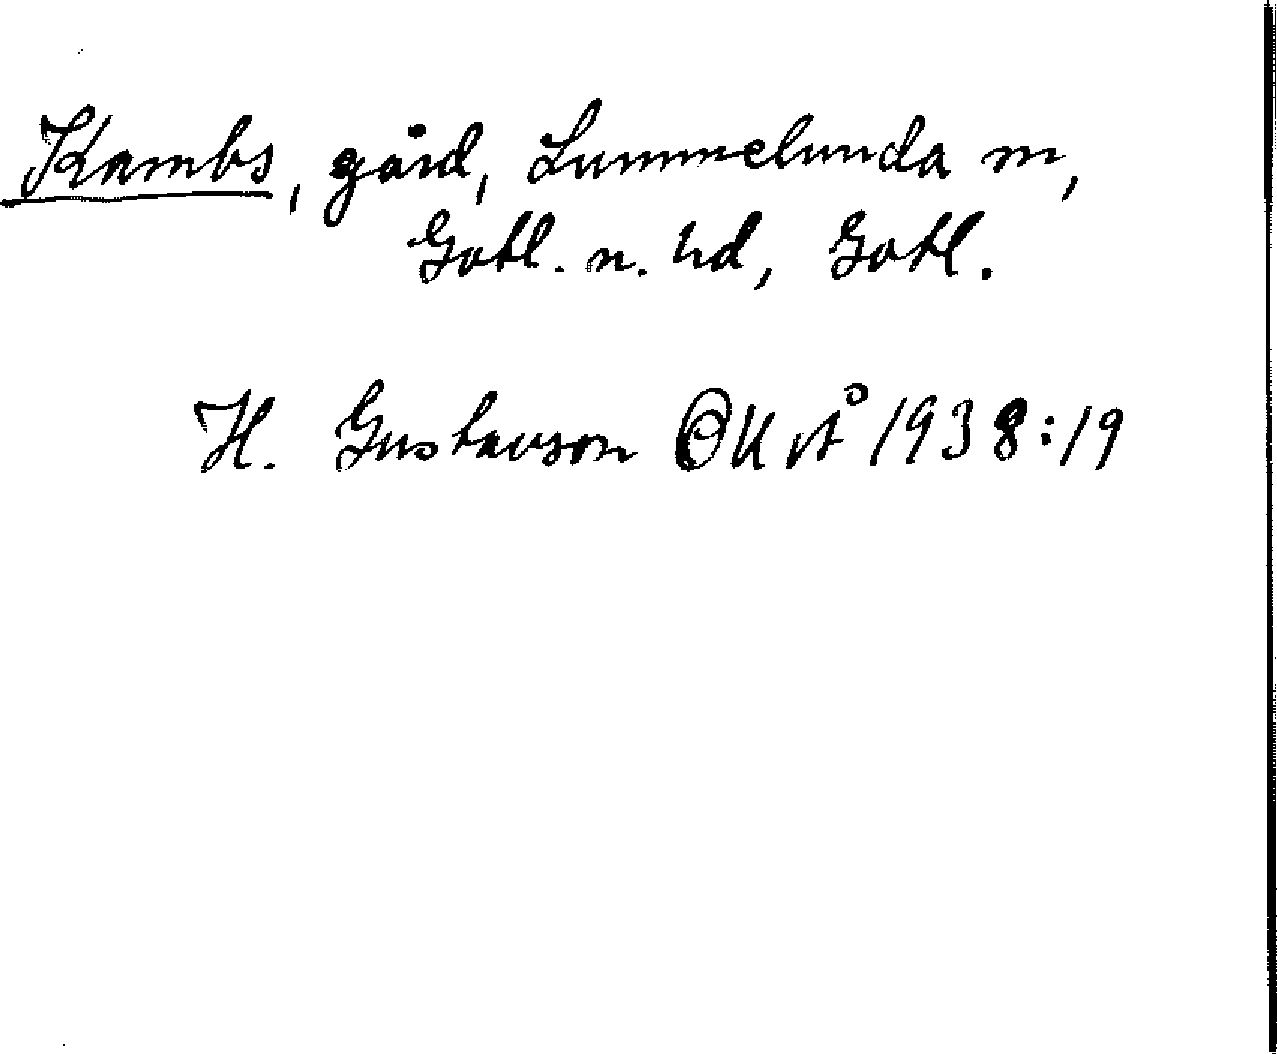 Kambs, gård, Lummelunda m,
Gotl. n. hd, Gotl.
H. Gustavson 1938:19